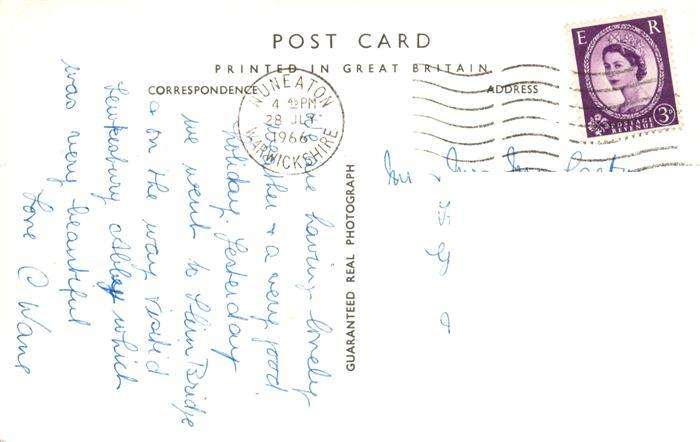 POST CARD
PRINTED IN GREAT BRITAIN
CORRESPONDENCE
ADDRESS
E R
POSTAGE
REVENUE
3D
NUNEATON
4 PM
28 JLY
1966
WARWICKSHIRE
GUARANTEED REAL PHOTOGRAPH
having lovely
& a very good
holiday. Yesterday
we went to Slim Bridge
& on the way visited
Tewkesbury Abbey which
was very beautiful
Love C Wane